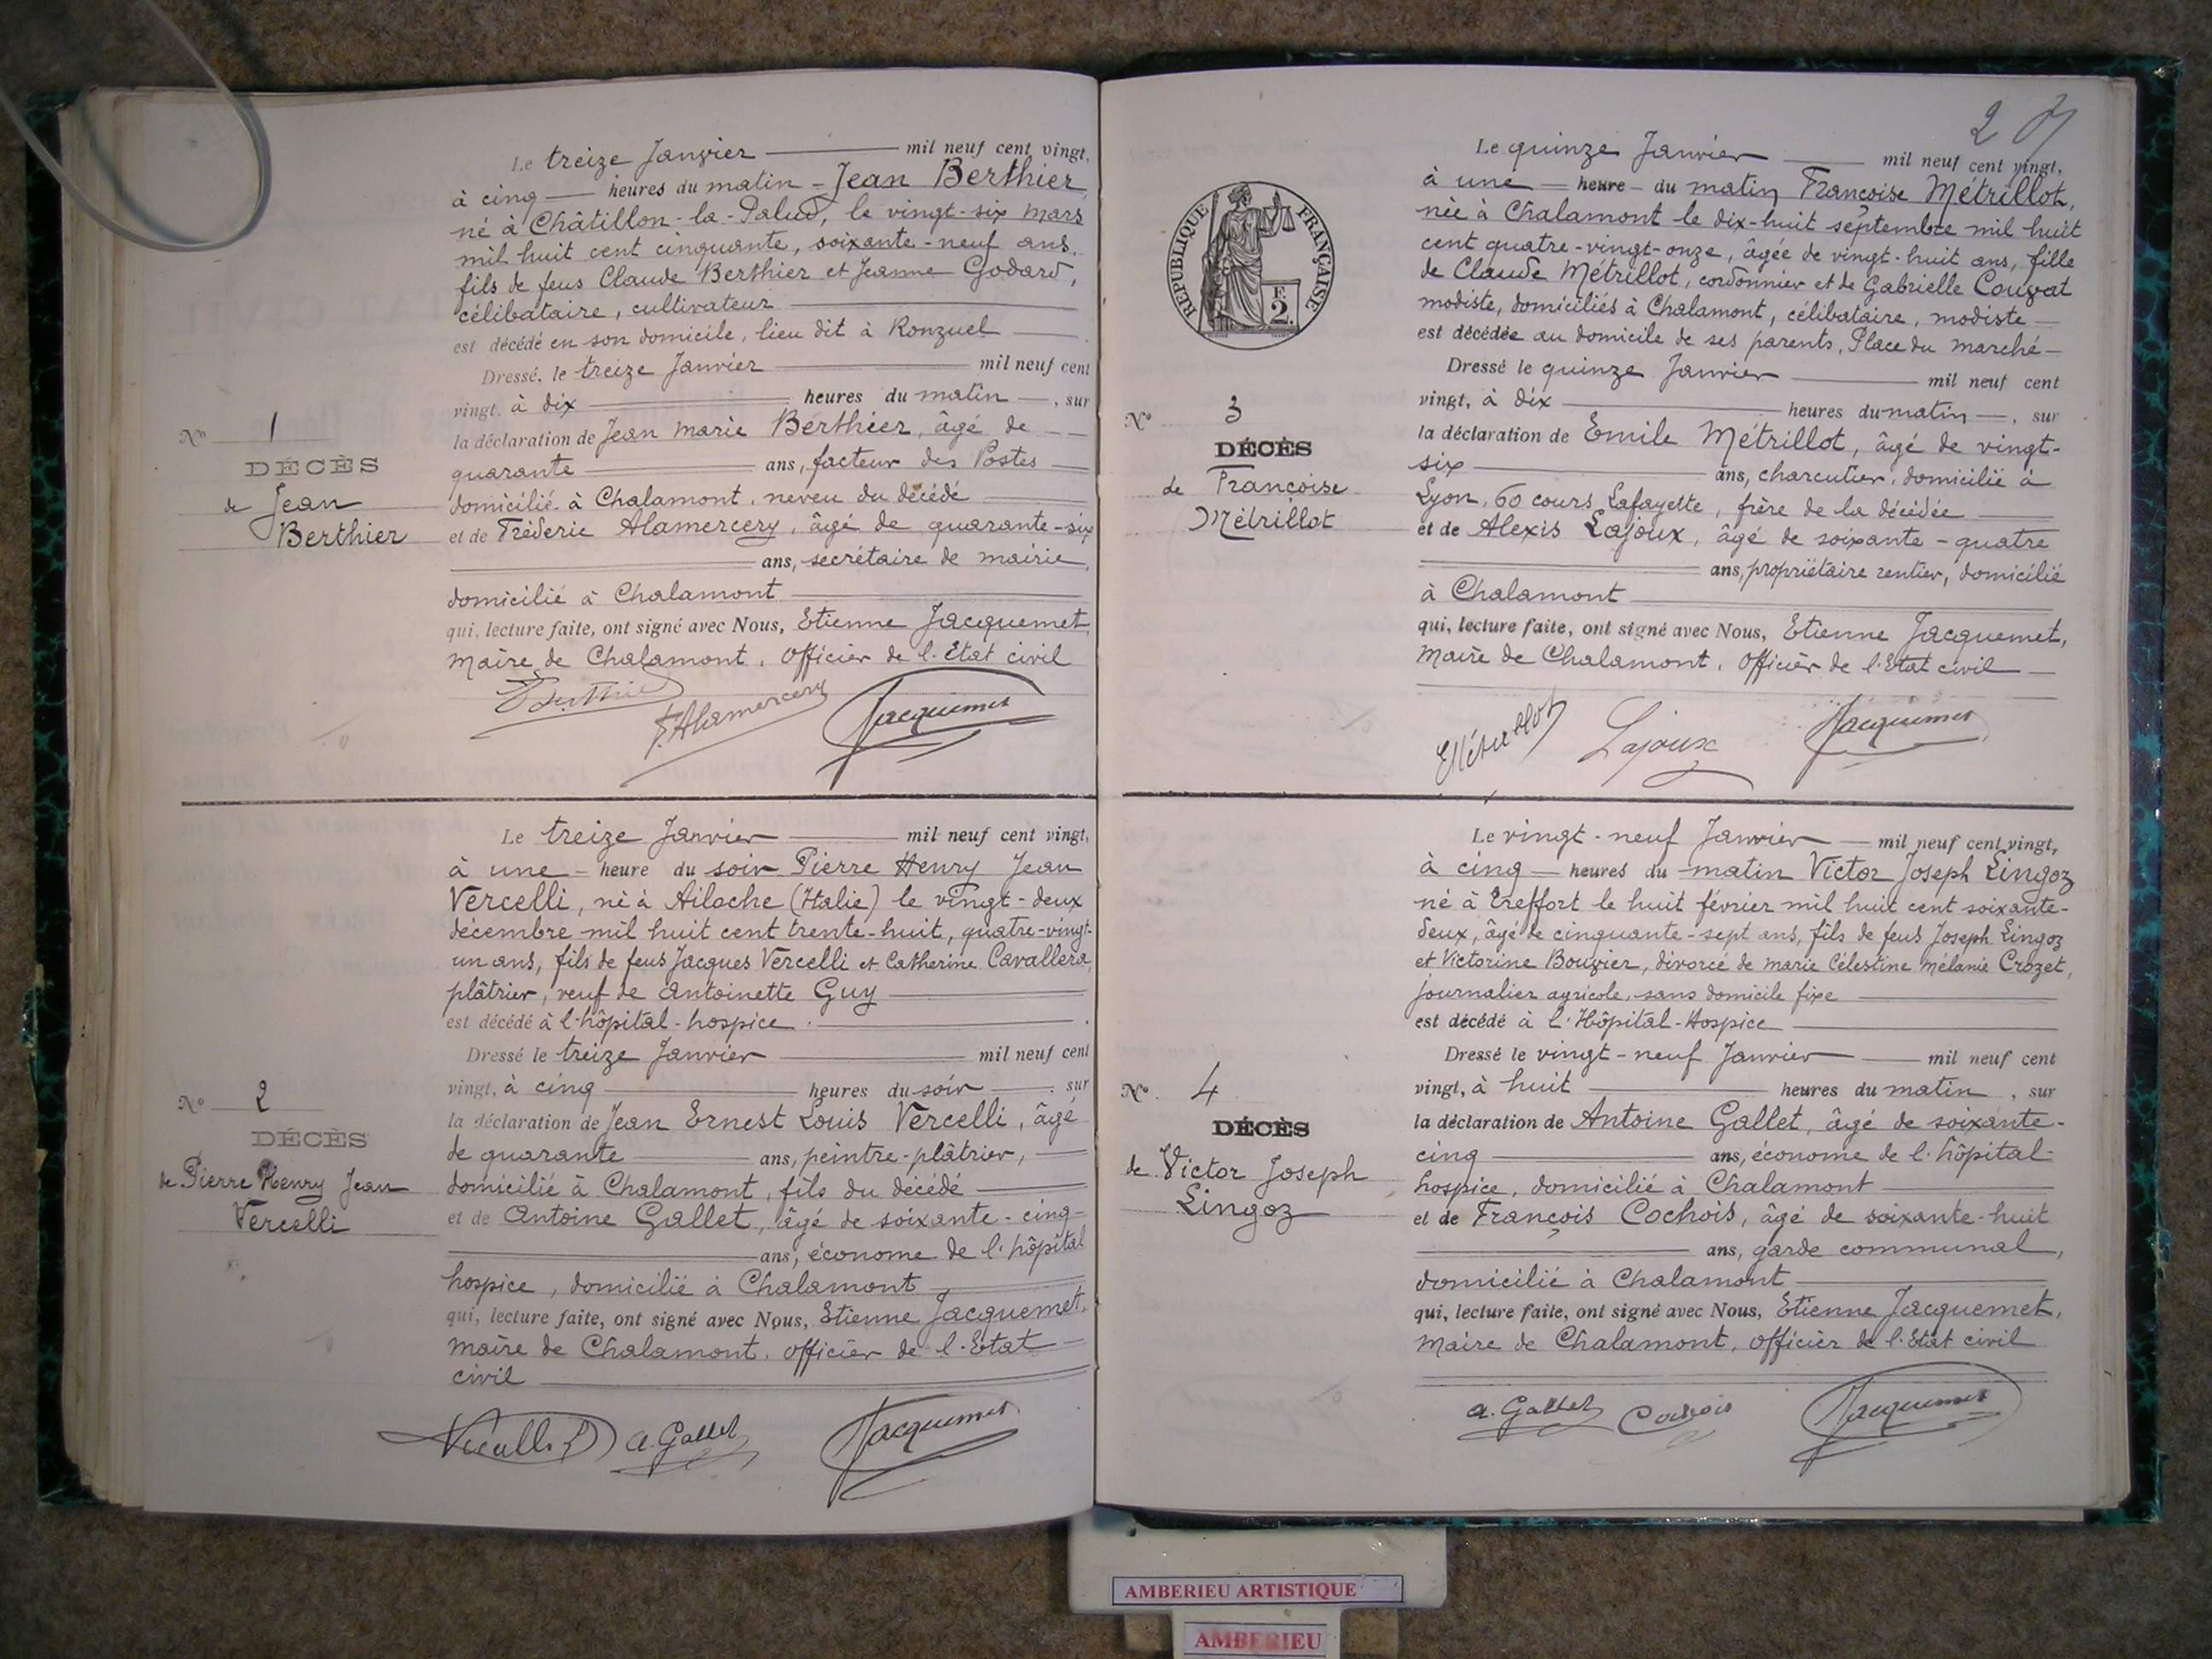 Le treize Janvier mil neuf cent vingt,
à cinq heures du matin - Jean Berthier
né à Châtillon-la-Palud, le vingt-six mars
mil huit cent cinquante, soixante-neuf ans.
fils de feus Claude Berthier et Jeanne Godard,
célibataire, cultivateur
est décédé en son domicile, lieu dit à Ronzuel
Dressé, le treize Janvier mil neuf cent
vingt, à dix heures du matin, sur
la déclaration de Jean Marie Berthier, âgé de
quarante ans, facteur des Postes
domicilié à Chalamont, neveu du décédé
et de Fréderic Alamercery, âgé de quarante-six
ans, secrétaire de mairie,
domicilié à Chalamont
qui, lecture faite, ont signé avec Nous, Etienne Jacquemet,
Maire de Chalamont, Officier de l'Etat civil
Berthier F. Alamercery Jacquemet
N° 1
DÉCÈS
de Jean
Berthier
Le treize Janvier mil neuf cent vingt,
à une heure du soir Pierre Henry Jean
Vercelli, né à Ailoche (Italie) le vingt-deux
décembre mil huit cent trente-huit, quatre-vingt-
un ans, fils de feus Jacques Vercelli et Catherine Cavallera,
plâtrier, veuf de Antoinette Guy
est décédé à l'hôpital-hospice
Dressé le treize Janvier mil neuf cent
vingt, à cinq heures du soir, sur
la déclaration de Jean Ernest Louis Vercelli, âgé
de quarante ans, peintre-plâtrier,
domicilié à Chalamont, fils du décédé
et de Antoine Gallet, âgé de soixante-cinq
ans, économe de l'hôpital
hospice, domicilié à Chalamont
qui, lecture faite, ont signé avec Nous, Etienne Jacquemet,
Maire de Chalamont, Officier de l'Etat
civil
A. Gallet Jacquemet
N° 2
DÉCÈS
de Pierre Henry Jean
Vercelli
2
RÉPUBLIQUE FRANÇAISE
F.
2.
Le quinze Janvier mil neuf cent vingt,
à une heure du matin Françoise Métrillot,
née à Chalamont le dix-huit septembre mil huit
cent quatre-vingt-onze, âgée de vingt-huit ans, fille
de Claude Métrillot, cordonnier et de Gabrielle Couvat
modiste, domiciliés à Chalamont, célibataire, modiste
est décédée au domicile de ses parents, Place du marché
Dressé le quinze Janvier mil neuf cent
vingt, à dix heures du matin, sur
la déclaration de Emile Métrillot, âgé de vingt-
six ans, charcutier, domicilié à
Lyon, 60 cours Lafayette, frère de la décédée
et de Alexis Lajoux, âgé de soixante-quatre
ans, propriétaire rentier, domicilié
à Chalamont
qui, lecture faite, ont signé avec Nous, Etienne Jacquemet,
Maire de Chalamont, Officier de l'Etat civil
E Métrillot Lajoux Jacquemet
N° 3
DÉCÈS
de Françoise
Métrillot
Le vingt-neuf Janvier mil neuf cent vingt,
à cinq heures du matin Victor Joseph Lingoz
né à Treffort le huit février mil huit cent soixante-
deux, âgé de cinquante-sept ans, fils de feus Joseph Lingoz
et Victorine Bouvier, divorcé de Marie Célestine Mélanie Crozet,
journalier agricole, sans domicile fixe
est décédé à l'Hôpital-Hospice
Dressé le vingt-neuf Janvier mil neuf cent
vingt, à huit heures du matin, sur
la déclaration de Antoine Gallet, âgé de soixante-
cinq ans, économe de l'hôpital-
hospice, domicilié à Chalamont
et de François Cochois, âgé de soixante-huit
ans, garde communal,
domicilié à Chalamont
qui, lecture faite, ont signé avec Nous, Etienne Jacquemet,
Maire de Chalamont, Officier de l'Etat civil
A. Gallet Cochois Jacquemet
N° 4
DÉCÈS
de Victor Joseph
Lingoz
AMBERIEU ARTISTIQUE
AMBERIEU